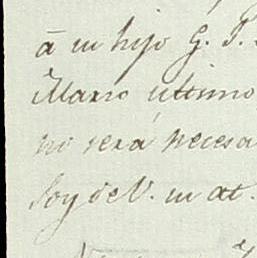 á su hijo G. T.
Marzo ultimo
no será necesa
Soy de V. su at.